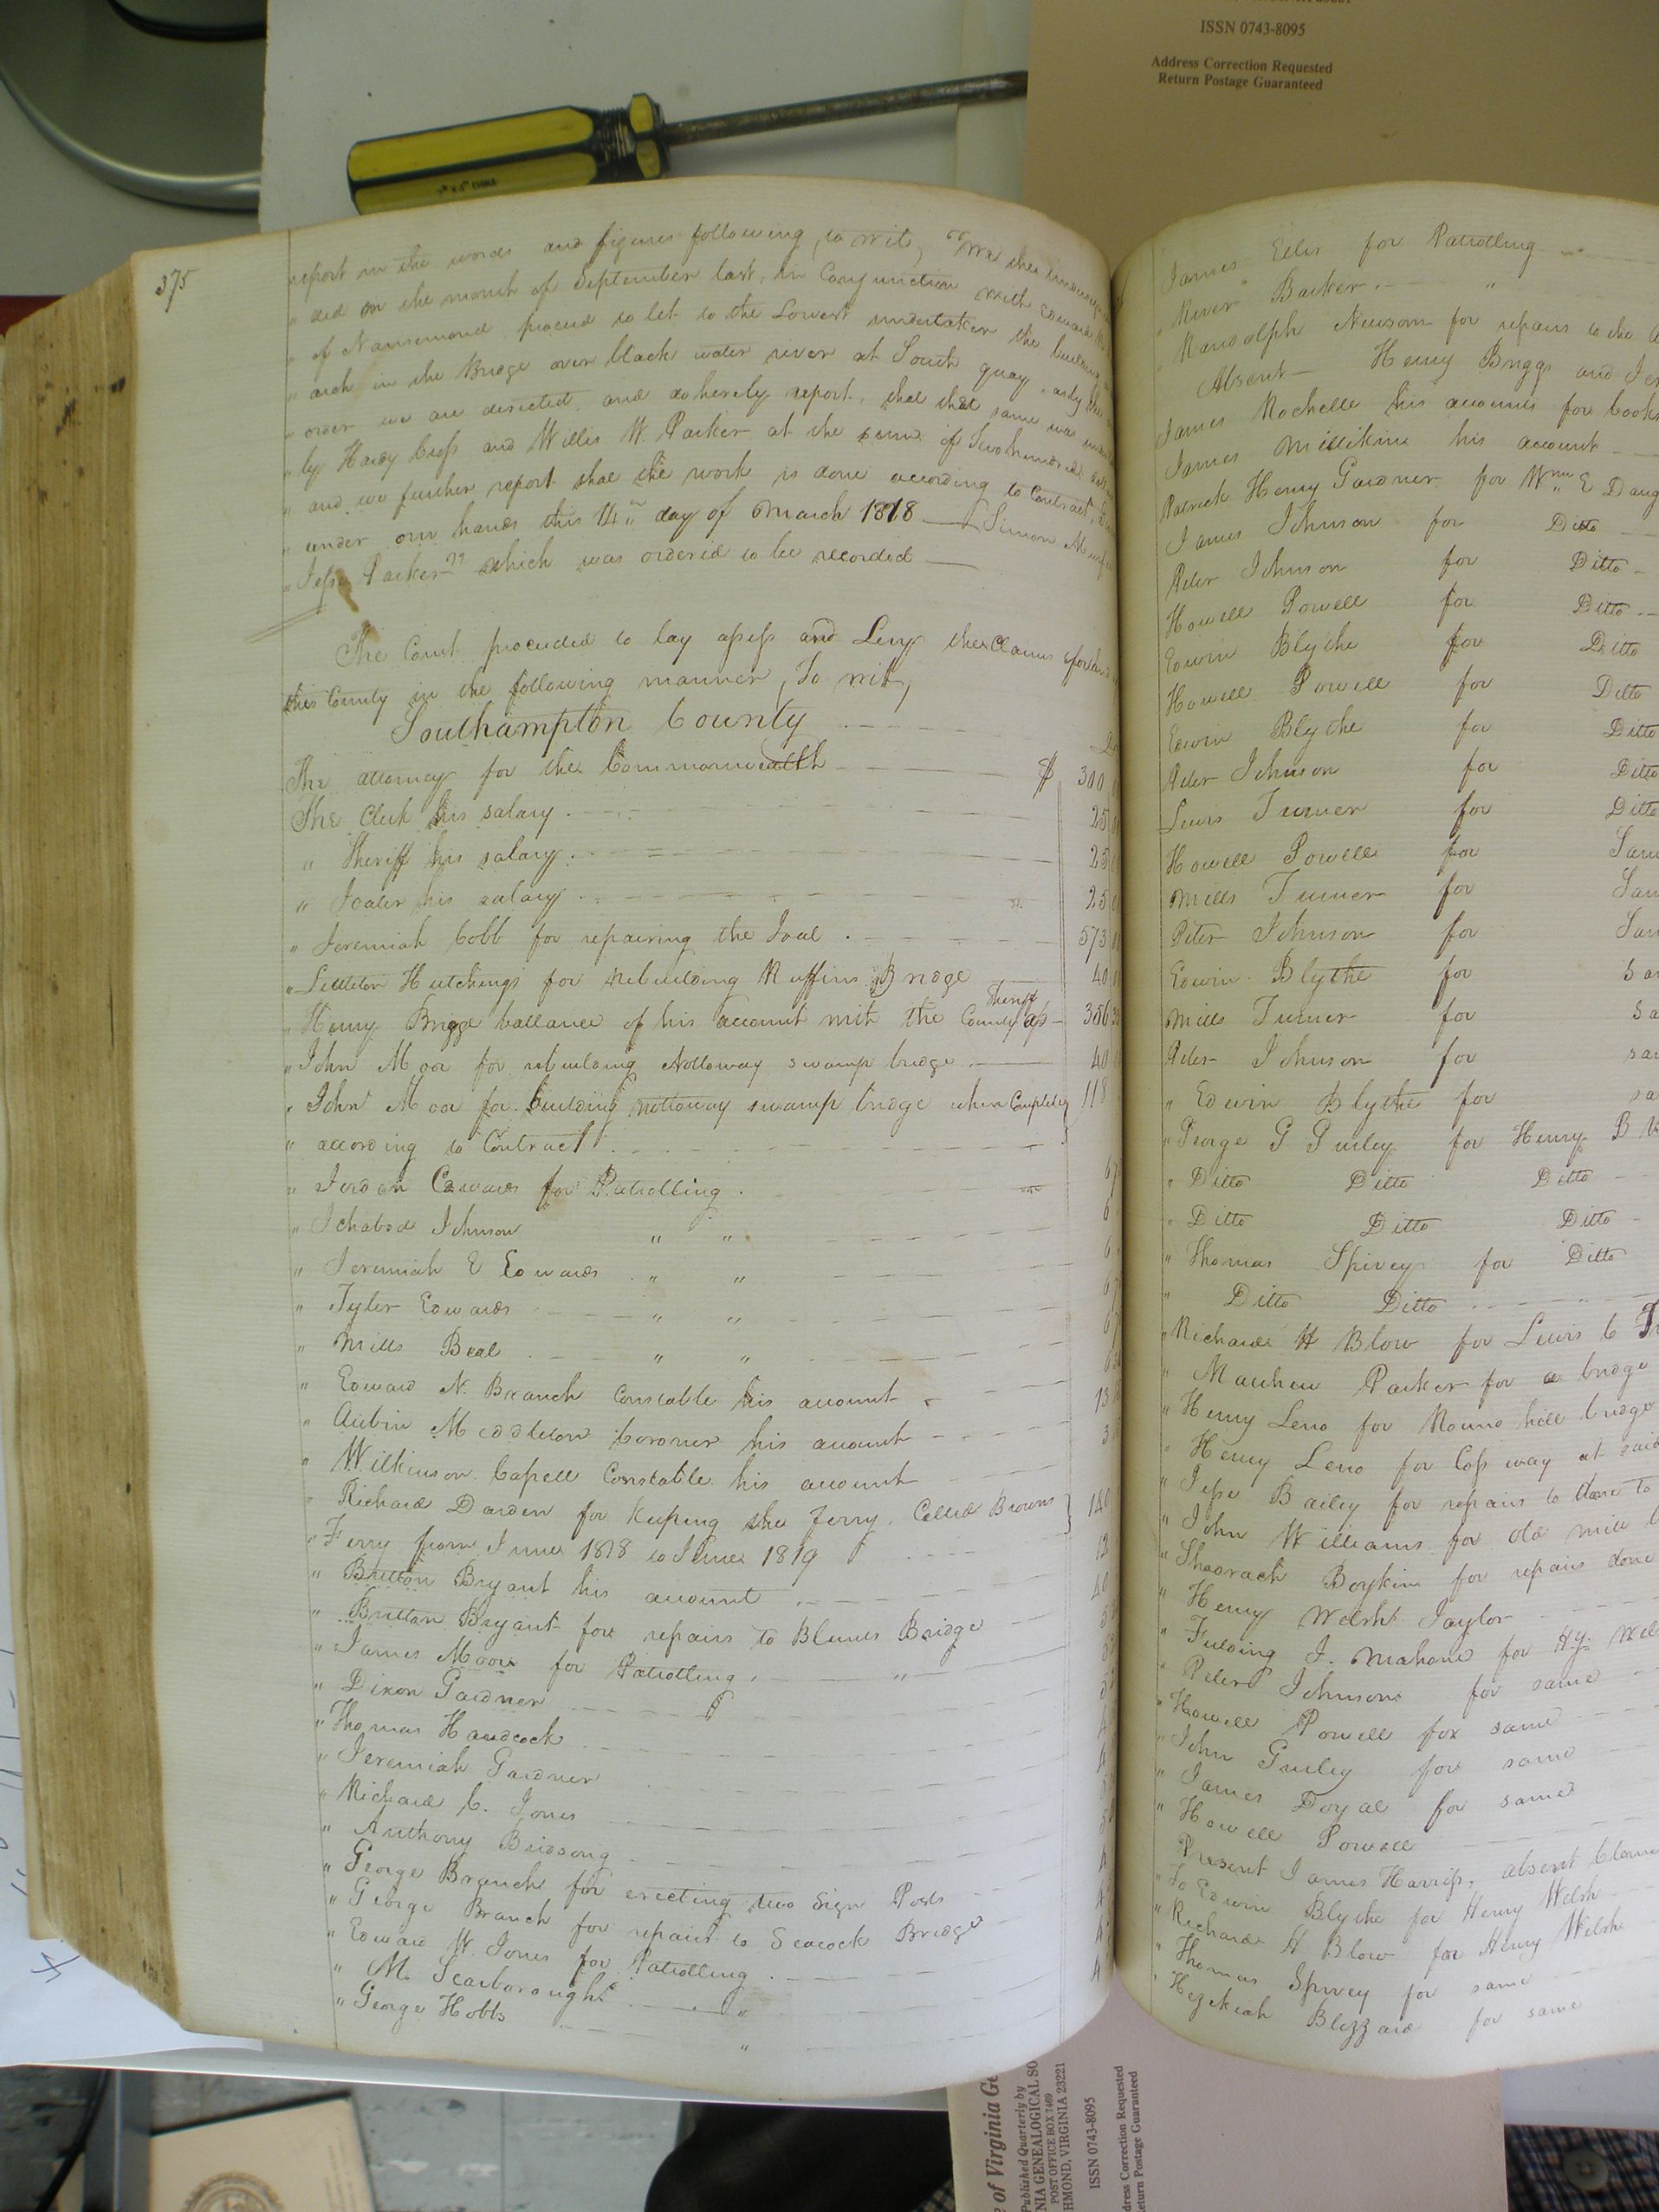 ISSN 0743-8095
Address Correction Requested
Return Postage Guaranteed
375
report in the words and figures following, to wit, "We the
" ded in the month of September last, in Conjunction with Edward
" of Nansemond proceed to let to the Lowest undertaker the building
" arch in the Bridge over black water river at South quay, as by the
" order we are directed, and do hereby report, that that same was
" by Hardy Cross and Willis W. Parker at the sum of Two hundred
" and we further report that the work is done according to Contract,
" under our hands this 14th day of March 1818 — Simon
" Jesse Parker" which was ordered to be recorded —
The Court proceeded to lay assess and Levy the Claims
this County in the following manner, To wit,
Southampton County
The attorney for the Commonwealth $ 300
The Clerk his salary 25
" Sheriff his salary 25
" Joaler his salary 25
" Jeremiah Cobb for repairing the Joal 573
" Littleton Hutchings for rebuilding Ruffins Bridge 40
" Henry Briggs ballance of his account with the County as Sheriff 356
" John Moor for rebuilding Nottoway swamp bridge 40
" John Moor for building nottoway swamp bridge when Completed 118
" according to Contract
" Jordan Edwards for Patrolling 6
" Ichabod Johnson " " 6
" Jeremiah E Edwards " " 6
" Tyler Edwards " " 6
" Mills Beal " " 6
" Edward N. Branch Constable his account 13
" Aubin Middleton Coroner his account 3
" Wilkinson Capell Constable his account
" Richard Darden for Keeping the Ferry, Called Browns 140
" Ferry from June 1818 to June 1819
" Britton Bryant his account 12
" Britton Bryant for repairs to Blunts Bridge 40
" James Moore for Patrolling " 5
" Dixon Gardner 5
" Thomas Handcock
" Jeremiah Gardner
" Richard C. Jones
" Anthony Birdsong
" George Branch for erecting two Sign Posts
" George Branch for repairs to Seacock Bridge
" Edward W. Jones for Patrolling
" M. Scarborough "
" George Hobbs "
James Edes for Patrolling
" River Barker "
" Randolph Newsom for repairs to the
Absent — Henry Briggs and
James Rochelle his account for books
James Millikin his account
Patrick Henry Gardner for Wm E
James Johnson for Ditto
Peter Johnson for Ditto
Howell Powell for Ditto
Edwin Blythe for Ditto
Howell Powell for Ditto
Edwin Blythe for Ditto
Peter Johnson for Ditto
Lewis Turner for Ditto
Howell Powell for
Mills Turner for
Peter Johnson for
Edwin Blythe for
Mills Turner for
Peter Johnson for
" Edwin Blythe for
" George G Gurley for Henry B
" Ditto Ditto Ditto
" Ditto Ditto Ditto
" Thomas Spivey for Ditto
" Ditto Ditto
" Richard H Blow for Lewis C
" Mathew Parker for a bridge
" Henry Leno for Round hill bridge
" Henry Leno for Coss way at said
" Jesse Bailey for repairs to done to
" John Williams for Old mill
" Shadrach Boykin for repairs done
" Henry Welsh Taylor
" Fielding J. Mahone for Hy.
" Peter Johnson for same
" Howell Powell for same
" John Gurley for same
" James Doyal for same
" Howell Powell
Present James Harriss, absent
" To Edwin Blythe for Henry Welsh
" Richard H Blow for Henry Welsh
" Thomas Spivey for same
" Hezekiah Blizzard for same
of Virginia
Published Quarterly by
POST OFFICE BOX 7469
VIRGINIA 23221
ISSN 0743-8095
Address Correction Requested
Return Postage Guaranteed